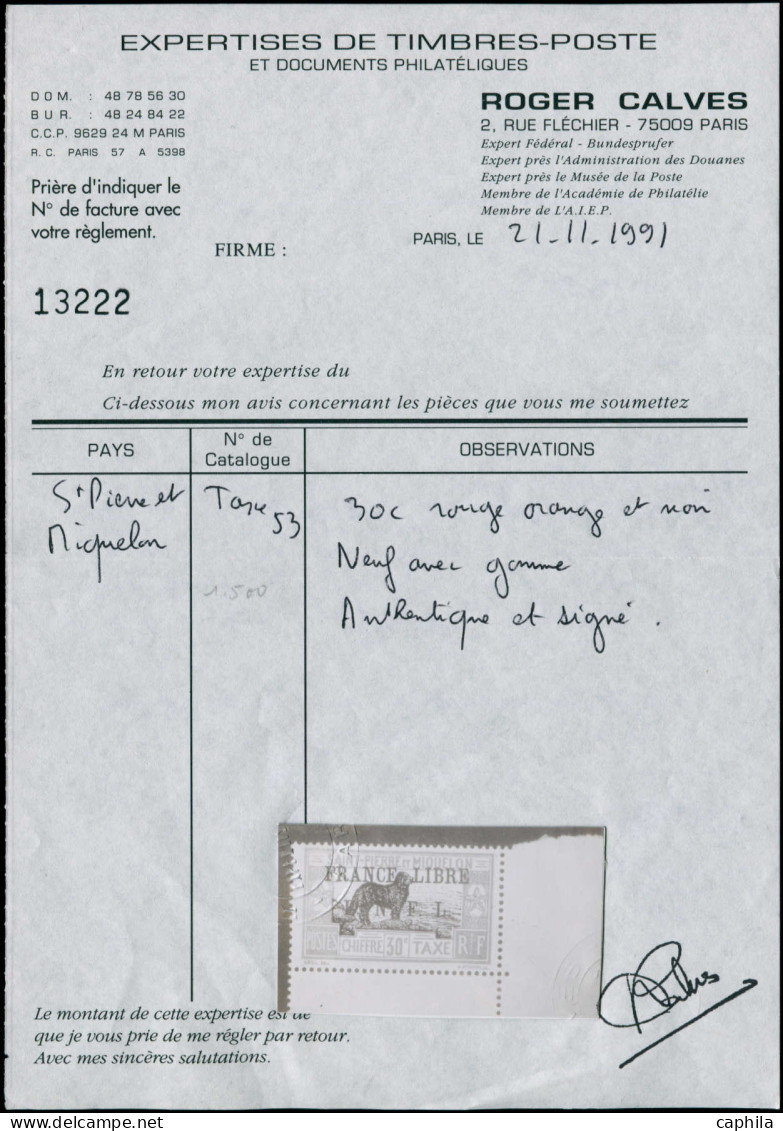 EXPERTISES DE TIMBRES-POSTE
ET DOCUMENTS PHILATÉLIQUES
DOM. : 48 78 56 30
BUR. : 48 24 84 22
C.C.P. 9629 24 M PARIS
R.C. PARIS 57 A 5398
ROGER CALVES
2, RUE FLÉCHIER - 75009 PARIS
Expert Fédéral - Bundesprufer
Expert près l'Administration des Douanes
Expert près le Musée de la Poste
Membre de l'Académie de Philatélie
Membre de L'A.I.E.P.
Prière d'indiquer le
N° de facture avec
votre règlement.
FIRME :
PARIS, LE 21-11-1991
13222
En retour votre expertise du
Ci-dessous mon avis concernant les pièces que vous me soumettez
PAYS
N° de
Catalogue
OBSERVATIONS
St Pierre et
Miquelon
Taxe
53
1.500
30c rouge orange et noir
Neuf avec gomme
Authentique et signé.
SAINT-PIERRE ET MIQUELON
FRANCE LIBRE
F. N. F. L.
POSTES CHIFFRE 30c TAXE RF
Le montant de cette expertise est de
que je vous prie de me régler par retour.
Avec mes sincères salutations.
caphila